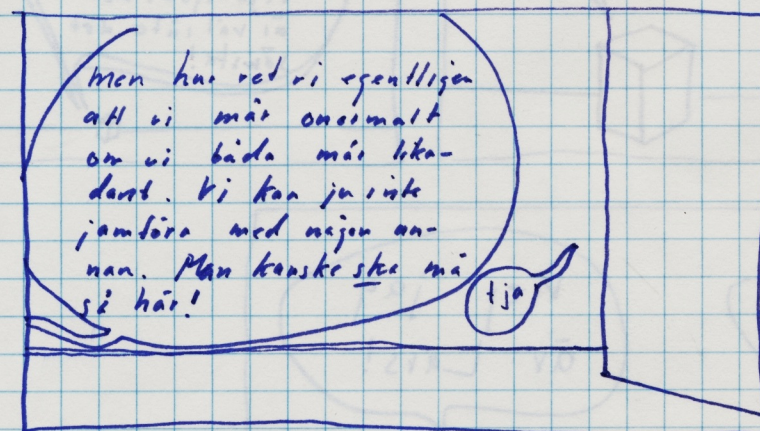 Men hur vet vi egentligen
att vi mår onormalt
om vi båda mår lika-
dant. Vi kan ju inte
jämföra med någon an-
nan. Man kanske ska må
så här!
tja